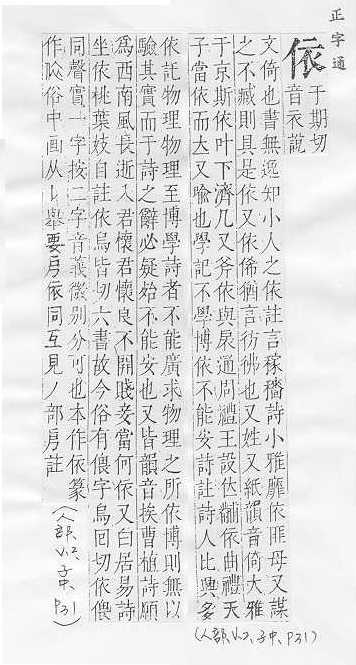 正字通
依 于期切
音衣說
文倚也書無逸知小人之依註言稼穡詩小雅靡依匪母又謀
之不臧則具是依又依稀猶言彷彿也又姓又紙韻音倚大雅
于京斯依叶下濟几又斧依與扆通周禮王設依黼依曲禮天
子當依而立又喩也學記不學博依不能安詩註詩人比興多
依託物理物理至博學詩者不能廣求物理之所依博則無以
驗其實而于詩之辭必疑殆不能安也又皆韻音挨曹植詩願
爲西南風長逝入君懷君懷良不開賤妾當何依又白居易詩
坐依桃葉妓自註依烏皆切六書故今俗有偎字烏回切依偎
同聲實一字按二字音義微別分可也本作依篆
作 俗中画从 舉要 依同互見丿部 註
(人部,V.2, 子中, P31)
(人部V.2, 子中, P31)